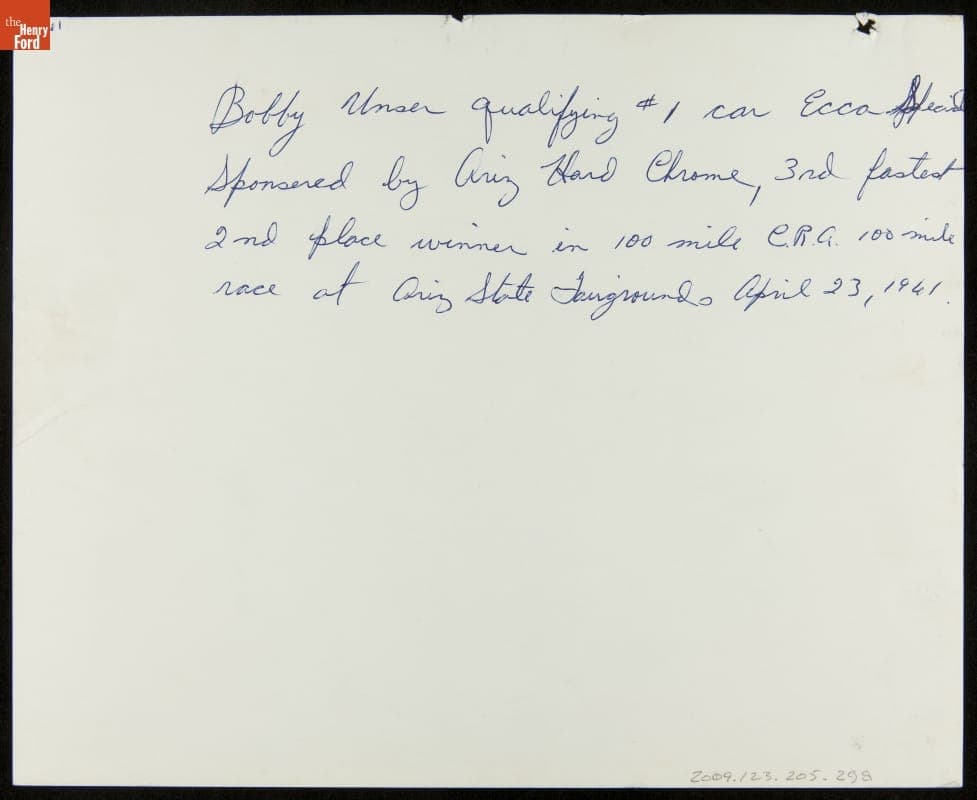 the
Henry
Ford
Bobby Unser qualifying #1 car Ecco Special
Sponsered by Ariz Hard Chrome, 3rd fastest
2nd place winner in 100 mile C.R.A. 100 mile
race at Ariz State Fairgrounds April 23, 1961.
2009.123.205.298